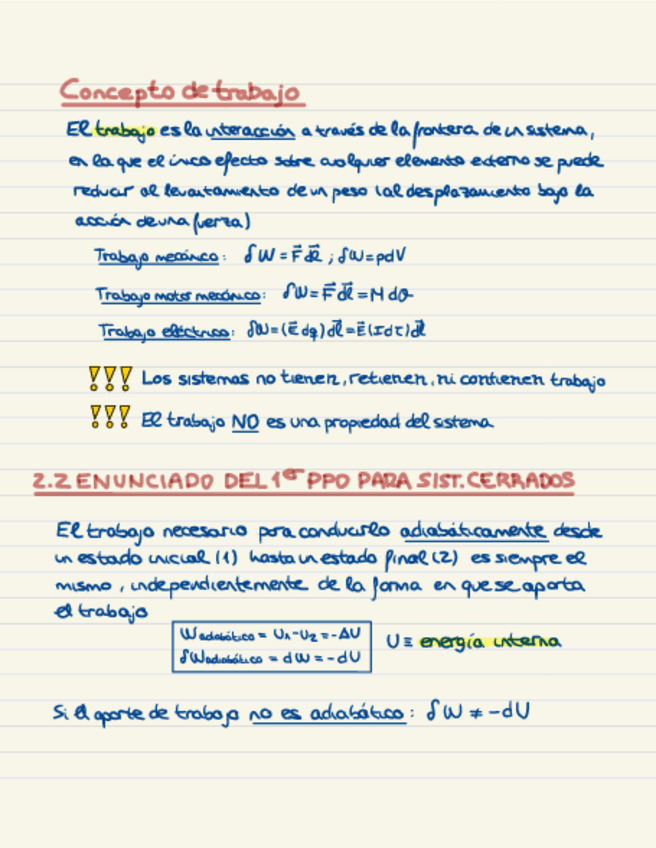 Concepto de trabajo
El trabajo es la interacción a través de la frontera de un sistema,
en la que el único efecto sobre cualquier elemento externo se puede
reducir al levantamiento de un peso (al desplazamiento bajo la
acción de una fuerza)
Trabajo mecánico: δW = F⃗ dl⃗ ; δW = pdV
Trabajo motor mecánico: δW = F⃗ dl⃗ = M dθ
Trabajo eléctrico: δW = (E⃗ dq) dl⃗ = E⃗ (I dτ) dl⃗
!!! Los sistemas no tienen, retienen, ni contienen trabajo
!!! El trabajo NO es una propiedad del sistema
2.2 ENUNCIADO DEL 1er PPO PARA SIST. CERRADOS
El trabajo necesario para conducirlo adiabáticamente desde
un estado inicial (1) hasta un estado final (2) es siempre el
mismo, independientemente de la forma en que se aporta
el trabajo
Wadiabático = U1 - U2 = -ΔU
δWadiabático = dW = -dU
U ≡ energía interna
Si el aporte de trabajo no es adiabático: δW ≠ -dU